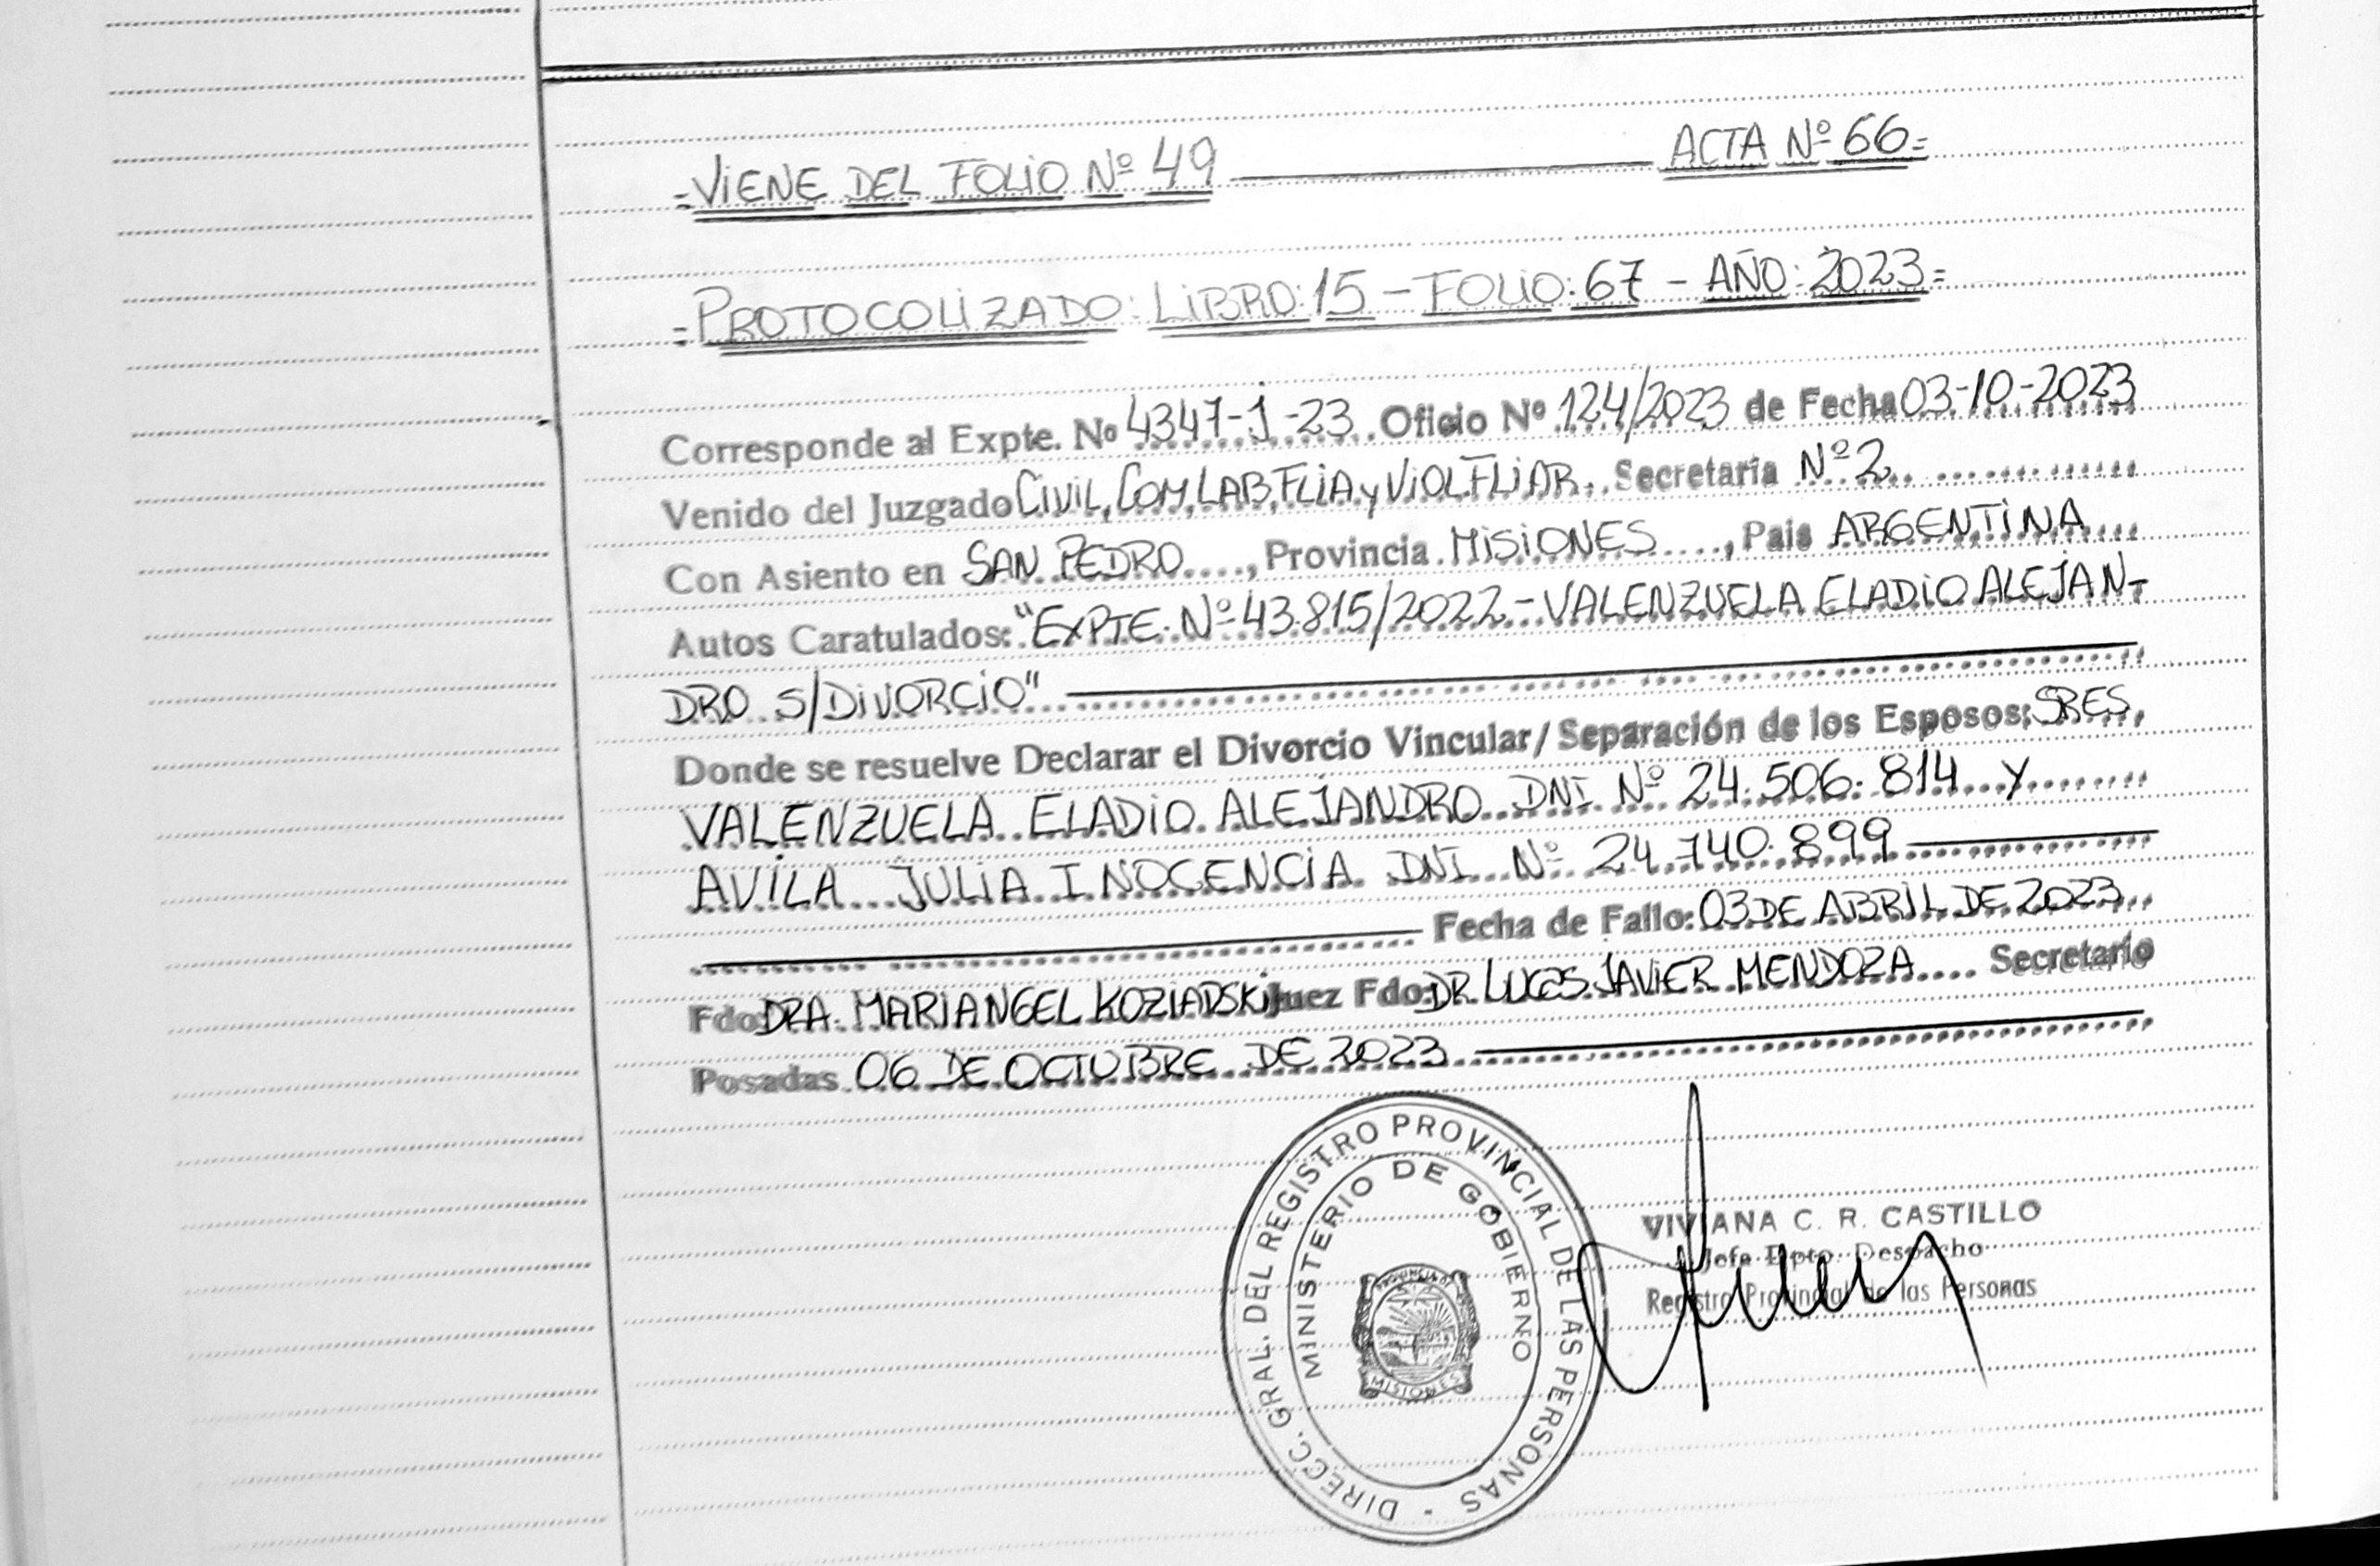 =VIENE DEL FOLIO Nº 49 ACTA Nº 66=
=PROTOCOLIZADO: LIBRO: 15 - FOLIO: 67 - AÑO: 2023=
Corresponde al Expte. Nº 4347-J-23 Oficio Nº 124/2023 de Fecha 03-10-2023
Venido del Juzgado CIVIL, COM, LAB, FLIA y VIOL.FLIAR. Secretaría Nº 2
Con Asiento en SAN PEDRO, Provincia MISIONES, Pais ARGENTINA
Autos Caratulados: "EXPTE. Nº 43.815/2022 - VALENZUELA ELADIO ALEJAN-
DRO S/DIVORCIO"
Donde se resuelve Declarar el Divorcio Vincular/Separación de los Esposos: SRES,
VALENZUELA ELADIO ALEJANDRO DNI Nº 24.506.814 Y
AVILA JULIA INOCENCIA DNI Nº 24.740.899
Fecha de Fallo: 03 DE ABRIL DE 2023
Fdo: DRA. MARIANGEL KOZIARSKI Juez Fdo: DR LUCAS JAVIER MENDOZA Secretario
Posadas 06 DE OCTUBRE DE 2023
DIRECC. GRAL. DEL REGISTRO PROVINCIAL DE LAS PERSONAS
MINISTERIO DE GOBIERNO
PROVINCIA DE
MISIONES
VIVIANA C. R. CASTILLO
Jefa Dpto. Despacho
Registro Provincial de las Personas